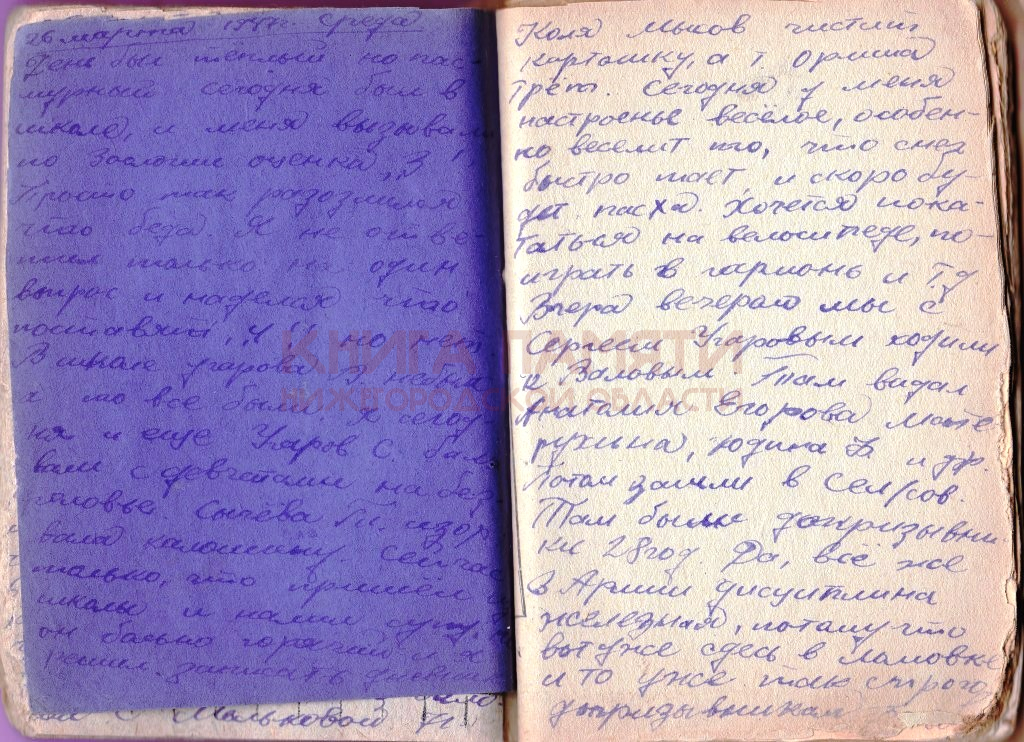 26 марта 1947г. Среда
День был тёплый но пас-
мурный сегодня был в
школе, и меня вызывали
по Зоологии оценка „3"
Просто так разозлился
что беда. Я не отве-
тил только на один
вопрос и наделал что
поставят „4" но нет
В школе Угарова
то все были. Я сегод-
ня и еще Угаров С.
с девчатами на без-
Сычёва
вала калошину. Сейчас
только, что пришёл из
школы и налил супу, а
он больно горячий и я
решил записать дневн
с Мальковой
Коля Мысов чистит
картошку, а т. Ориша
трёт. Сегодня у меня
настроенье весёлое, особен-
но веселит то, что снег
быстро тает и скоро бу-
дет пасха. Хочется пока-
таться на велосипеде, по-
играть в гармонь и т.д.
Вчера вечерам мы с
Сергеем Угаровым ходили
к Валовым. Там видал
Анатолия Егорова Мате
рухина, Юдина В и др.
Потом зашли в Сел/сов.
Там были допризывни-
ки 28 год. Да, всё же
в Армии дисциплина
железная, потому что
вот уже здесь в Ламовке
и то уже так строго
допризывникам
КНИГА ПАМЯТИ
НИЖЕГОРОДСКОЙ ОБЛАСТИ